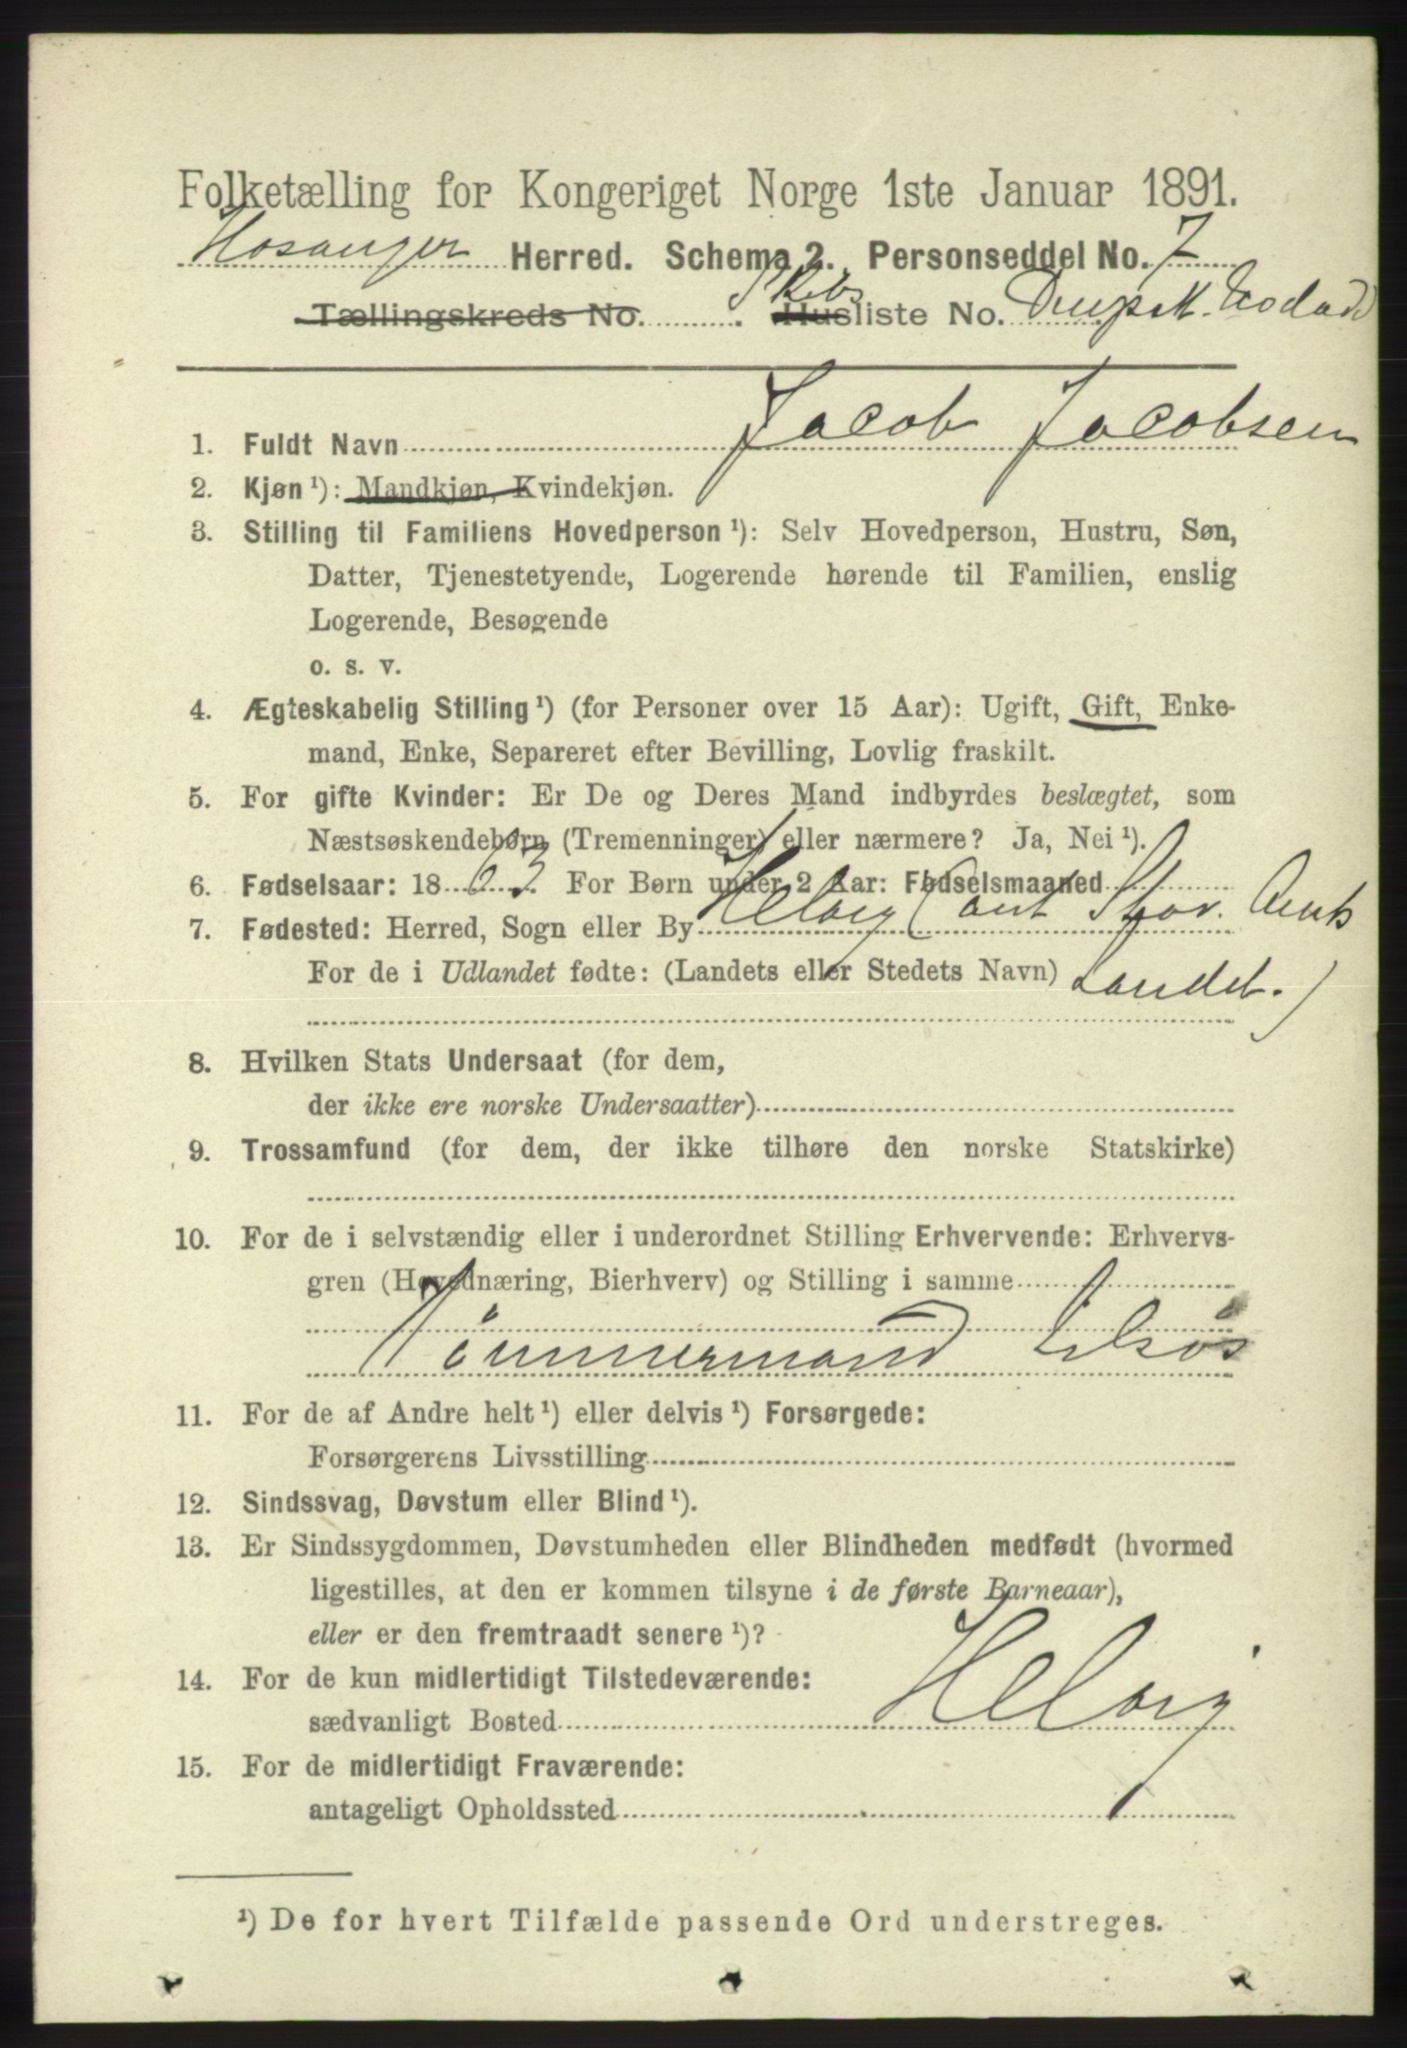 Folketælling for Kongeriget Norge 1ste Januar 1891.
Hosanger Herred. Schema 2. Personseddel No. 7
Tællingskreds No. Skibs Husliste No.
1. Fuldt Navn Jacob Jacobsen
2. Kjøn ¹): Mandkjøn, Kvindekjøn.
3. Stilling til Familiens Hovedperson ¹): Selv Hovedperson, Hustru, Søn,
Datter, Tjenestetyende, Logerende hørende til Familien, enslig
Logerende, Besøgende
o. s. v.
4. Ægteskabelig Stilling ¹) (for Personer over 15 Aar): Ugift, Gift, Enke-
mand, Enke, Separeret efter Bevilling, Lovlig fraskilt.
5. For gifte Kvinder: Er De og Deres Mand indbyrdes beslægtet, som
Næstsøskendebørn (Tremenninger) eller nærmere? Ja, Nei ¹).
6. Fødselsaar: 1863. For Børn under 2 Aar: Fødselsmaaned
7. Fødested: Herred, Sogn eller By Helvig (ant Stav. Amts
For de i Udlandet fødte: (Landets eller Stedets Navn) Landet.)
8. Hvilken Stats Undersaat (for dem,
der ikke ere norske Undersaatter)
9. Trossamfund (for dem, der ikke tilhøre den norske Statskirke)
10. For de i selvstændig eller i underordnet Stilling Erhvervende: Erhvervs-
gren (Hovednæring, Bierhverv) og Stilling i samme
Tömmermand tilsøs
11. For de af Andre helt ¹) eller delvis ¹) Forsørgede:
Forsørgerens Livsstilling
12. Sindssvag, Døvstum eller Blind ¹).
13. Er Sindssygdommen, Døvstumheden eller Blindheden medfødt (hvormed
ligestilles, at den er kommen tilsyne i de første Barneaar),
eller er den fremtraadt senere ¹)?
14. For de kun midlertidigt Tilstedeværende:
sædvanligt Bosted Helvig
15. For de midlertidigt Fraværende:
antageligt Opholdssted
¹) De for hvert Tilfælde passende Ord understreges.